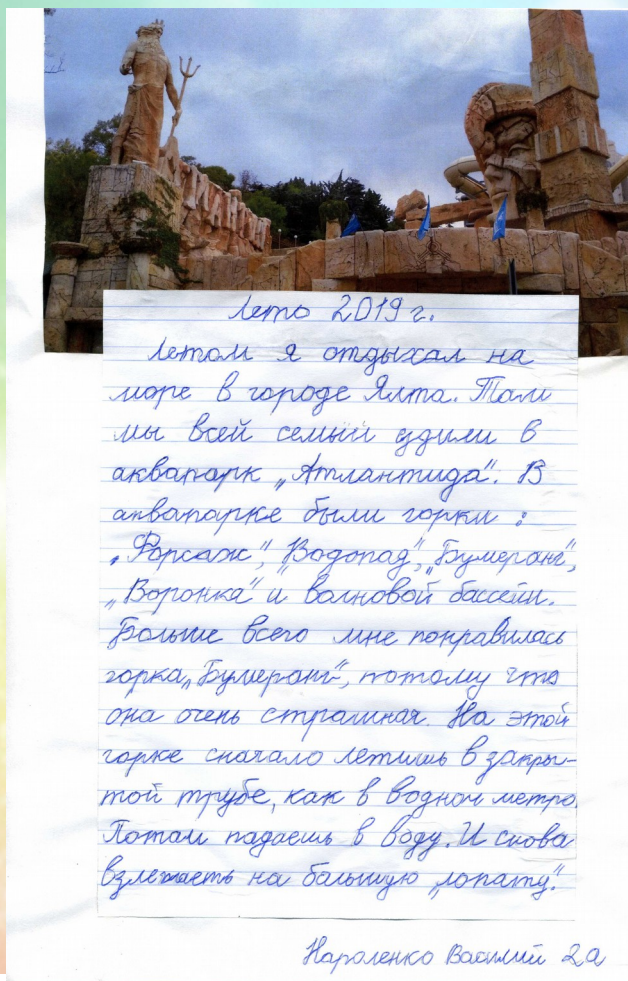 Лето 2019 г.
Летом я отдыхал на
море в городе Ялта. Там
мы всей семьй ездили в
аквапарк „Атлантида". В
аквапарке были горки :
„Форсаж", „Водопад", „Бумеранг",
„Воронка" и волновой бассейн.
Больше всего мне понравилась
горка „Бумеранг", потому что
она очень страшная. На этой
горке сначало летишь в закры-
той трубе, как в водном метро.
Потом падаешь в воду. И снова
взлетаеть на большую „лопату".
Нароленко Василий 2а